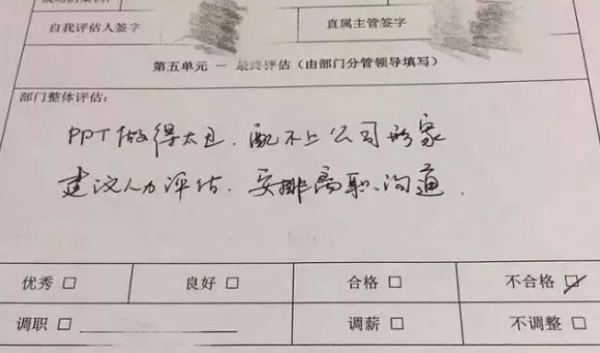 自我评估人签字 直属主管签字
第五单元 — 最终评估（由部门分管领导填写）
部门整体评估：
PPT做得太丑，配不上公司形象
建议人力评估，安排离职沟通．
优秀 □ 良好 □ 合格 □ 不合格 ☑
调职 □ 调薪 □ 不调整 □